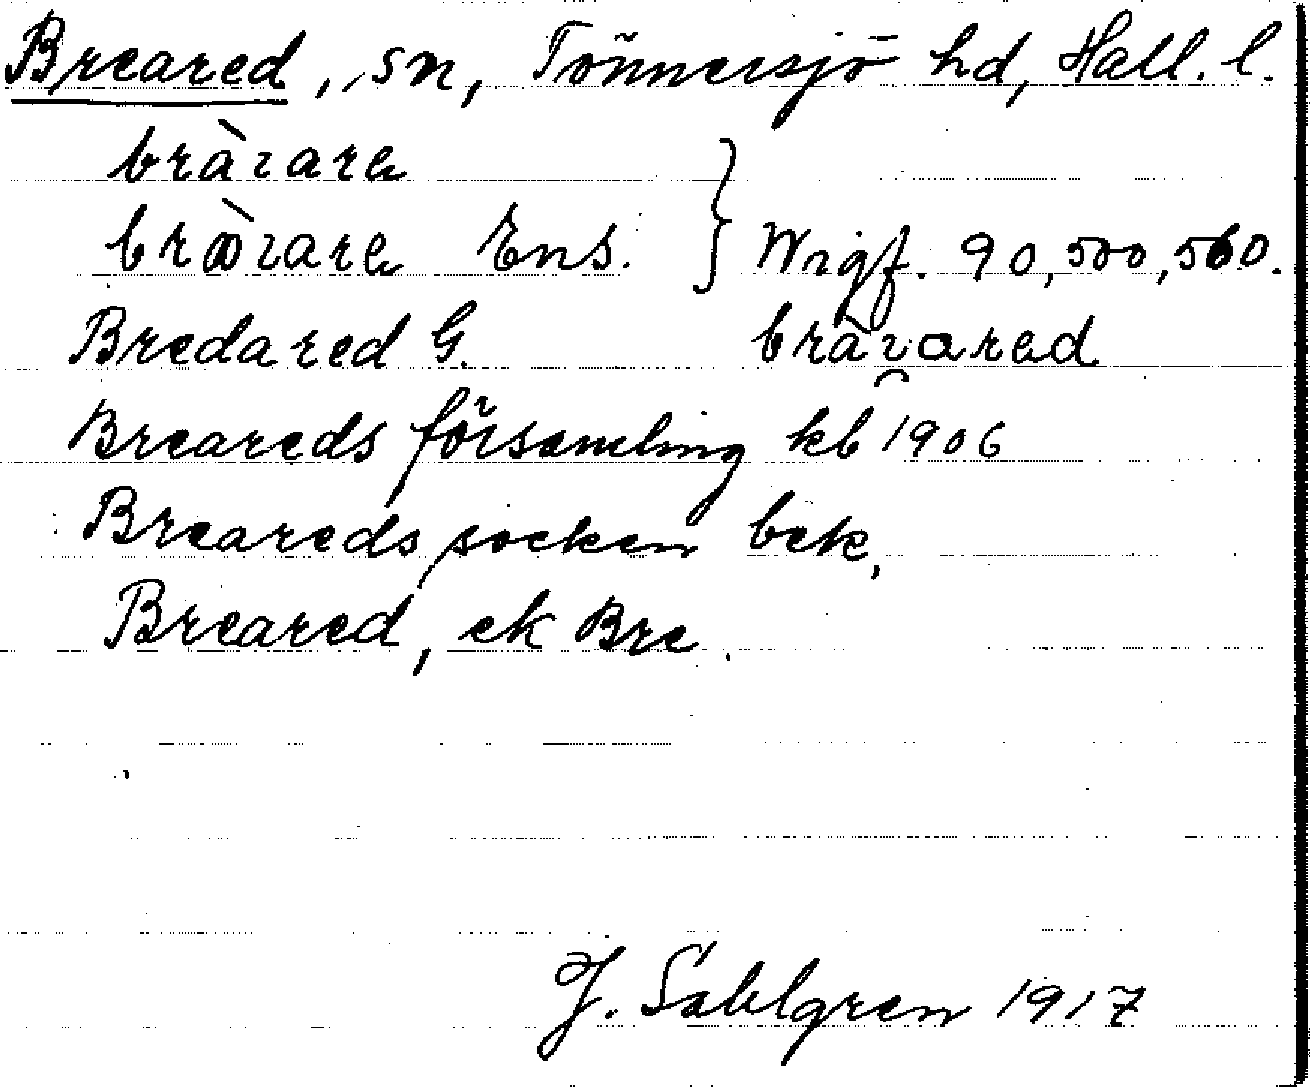 Breared, sn, Tönnersjö hd, Hall. l.
bràrare
brörare Ens. } Wigf. 90, 500, 560.
Bredared G. bràrared
Breareds församling kb 1906
Breareds socken bek,
Breared, ek Bre.
J. Sahlgren 1917